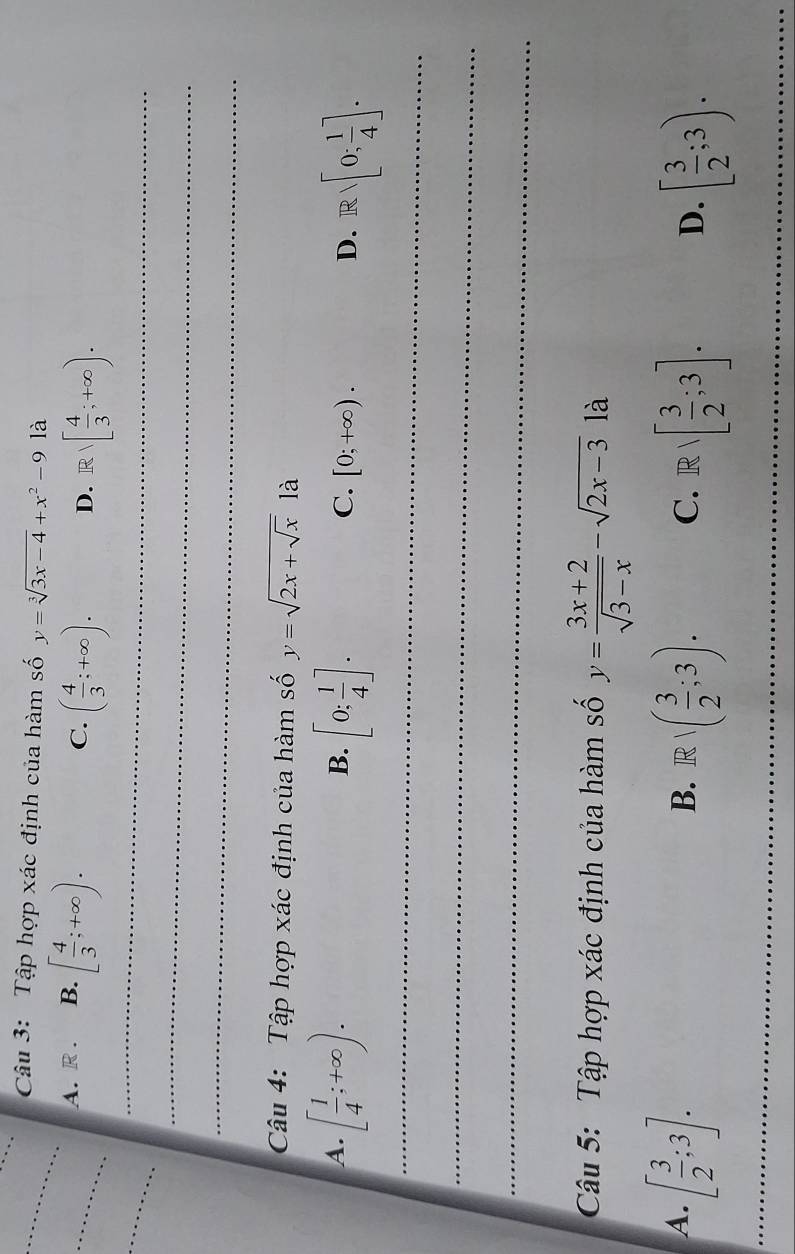 Câu 3: Tập hợp xác định của hàm số $y = \sqrt[3]{3x-4} + x^2 - 9$ là
A. $\mathbb{R}$. B. $\left[\frac{4}{3};+\infty\right)$. C. $\left(\frac{4}{3};+\infty\right)$. D. $\mathbb{R} \setminus \left[\frac{4}{3};+\infty\right)$.
Câu 4: Tập hợp xác định của hàm số $y = \sqrt{2x+\sqrt{x}}$ là
A. $\left[\frac{1}{4};+\infty\right)$. B. $\left[0;\frac{1}{4}\right]$. C. $[0;+\infty)$. D. $\mathbb{R} \setminus \left[0;\frac{1}{4}\right]$.
Câu 5: Tập hợp xác định của hàm số $y = \frac{3x+2}{\sqrt{3-x}} - \sqrt{2x-3}$ là
A. $\left[\frac{3}{2};3\right]$. B. $\mathbb{R} \setminus \left(\frac{3}{2};3\right)$. C. $\mathbb{R} \setminus \left[\frac{3}{2};3\right]$. D. $\left[\frac{3}{2};3\right)$.